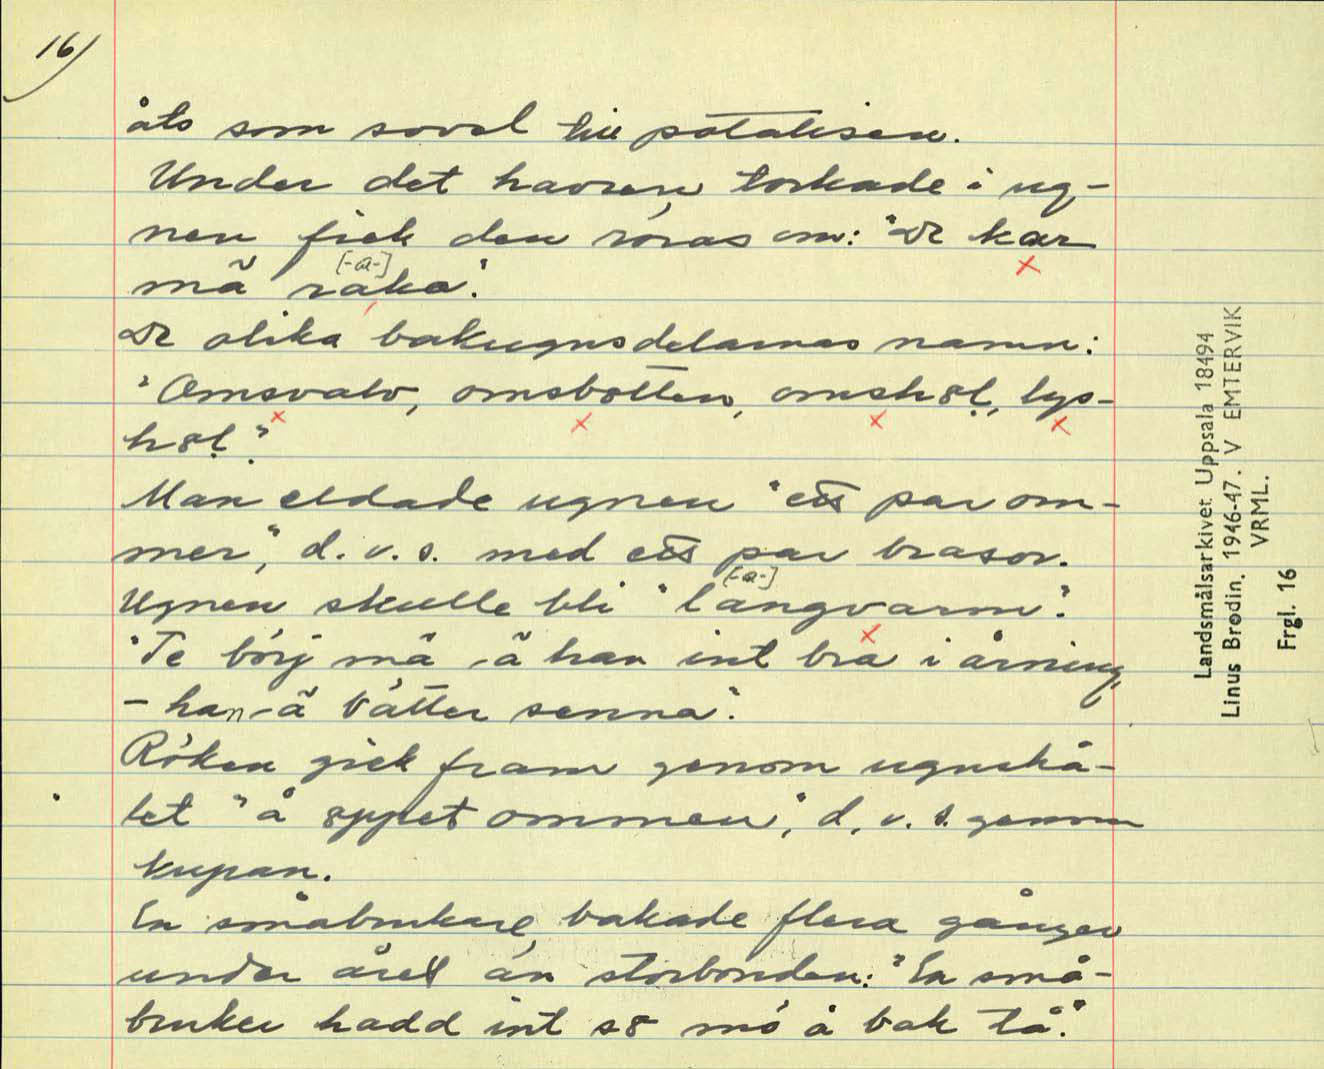 16)
åts som sovel till potatisen.
Under det havren torkade i ug-
nen fick den röras om: "De kar
[-a-]
mä raka".
De olika bakugnsdelarnas namn:
"Omsvalv, omsbotten, omsh8l, lys-
h8l."
Man eldade ugnen "ett par om-
mer", d.v.s. med ett par brasor.
[-a-]
Ugnen skulle bli "langvarm".
"Te börj mä ä han int bra i årning,
- han ä bätter senna".
Röken gick fram genom ugnshå-
let "å 8ppet ommen", d.v.s. genom
kupan.
En småbrukare bakade flera gånger
under året än storbonden: "En små-
bruker hadd int s8 mö å bak tå."
Landsmålsarkivet Uppsala 18494
Linus Brodin. 1946-47. V EMTERVIK
VRML.
Frgl. 16